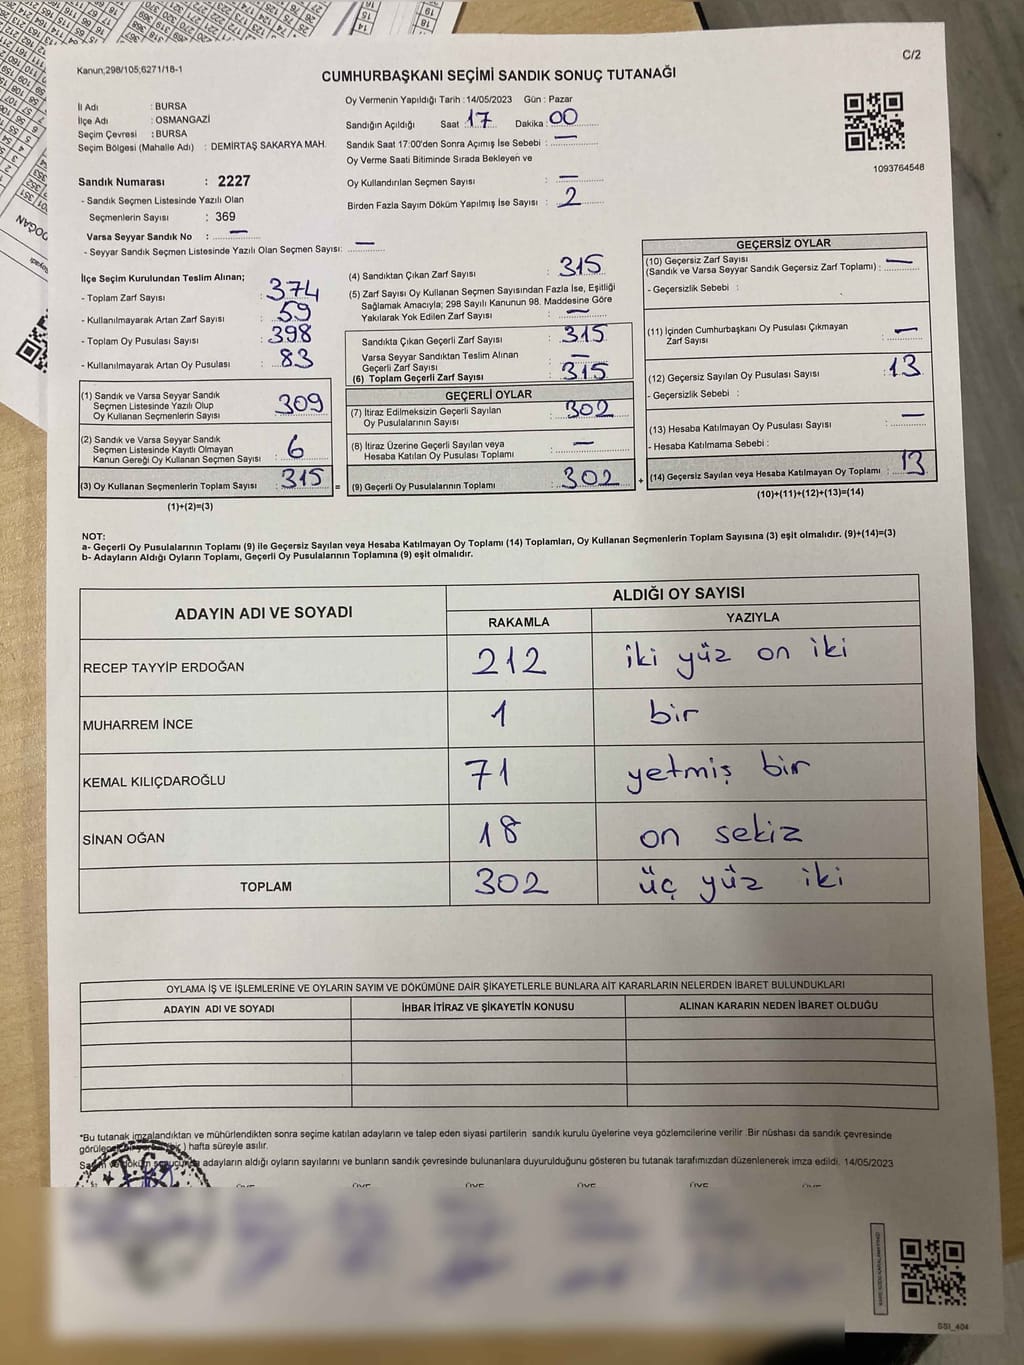 C/2
Kanun;298/105;6271/18-1
CUMHURBAŞKANI SEÇİMİ SANDIK SONUÇ TUTANAĞI
İl Adı : BURSA
İlçe Adı : OSMANGAZİ
Seçim Çevresi : BURSA
Seçim Bölgesi (Mahalle Adı) : DEMİRTAŞ SAKARYA MAH.
Sandık Numarası : 2227
- Sandık Seçmen Listesinde Yazılı Olan
Seçmenlerin Sayısı : 369
Varsa Seyyar Sandık No : —
- Seyyar Sandık Seçmen Listesinde Yazılı Olan Seçmen Sayısı: —
Oy Vermenin Yapıldığı Tarih :14/05/2023 Gün : Pazar
Sandığın Açıldığı Saat :17 Dakika :00
Sandık Saat 17:00'den Sonra Açımış İse Sebebi : —
Oy Verme Saati Bitiminde Sırada Bekleyen ve
Oy Kullandırılan Seçmen Sayısı : —
Birden Fazla Sayım Döküm Yapılmış İse Sayısı : 2
1093764548
İlçe Seçim Kurulundan Teslim Alınan;
- Toplam Zarf Sayısı : 374
- Kullanılmayarak Artan Zarf Sayısı : 59
- Toplam Oy Pusulası Sayısı : 398
- Kullanılmayarak Artan Oy Pusulası : 83
(1) Sandık ve Varsa Seyyar Sandık
Seçmen Listesinde Yazılı Olup
Oy Kullanan Seçmenlerin Sayısı : 309
(2) Sandık ve Varsa Seyyar Sandık
Seçmen Listesinde Kayıtlı Olmayan
Kanun Gereği Oy Kullanan Seçmen Sayısı : 6
(3) Oy Kullanan Seçmenlerin Toplam Sayısı : 315
(1)+(2)=(3)
=
(4) Sandıktan Çıkan Zarf Sayısı : 315
(5) Zarf Sayısı Oy Kullanan Seçmen Sayısından Fazla İse, Eşitliği
Sağlamak Amacıyla; 298 Sayılı Kanunun 98. Maddesine Göre
Yakılarak Yok Edilen Zarf Sayısı : —
Sandıkta Çıkan Geçerli Zarf Sayısı : 315
Varsa Seyyar Sandıktan Teslim Alınan
Geçerli Zarf Sayısı : —
(6) Toplam Geçerli Zarf Sayısı : 315
GEÇERLİ OYLAR
(7) İtiraz Edilmeksizin Geçerli Sayılan
Oy Pusulasının Sayısı : 302
(8) İtiraz Üzerine Geçerli Sayılan veya
Hesaba Katılan Oy Pusulası Toplamı : —
(9) Geçerli Oy Pusulalarının Toplamı : 302
+
GEÇERSİZ OYLAR
(10) Geçersiz Zarf Sayısı
(Sandık ve Varsa Seyyar Sandık Geçersiz Zarf Toplamı) : —
- Geçersizlik Sebebi :
(11) İçinden Cumhurbaşkanı Oy Pusulası Çıkmayan
Zarf Sayısı : —
(12) Geçersiz Sayılan Oy Pusulası Sayısı : 13
- Geçersizlik Sebebi :
(13) Hesaba Katılmayan Oy Pusulası Sayısı : —
- Hesaba Katılmama Sebebi :
(14) Geçersiz Sayılan veya Hesaba Katılmayan Oy Toplamı : 13
(10)+(11)+(12)+(13)=(14)
NOT:
a- Geçerli Oy Pusulalarının Toplamı (9) ile Geçersiz Sayılan veya Hesaba Katılmayan Oy Toplamı (14) Toplamları, Oy Kullanan Seçmenlerin Toplam Sayısına (3) eşit olmalıdır. (9)+(14)=(3)
b- Adayların Aldığı Oyların Toplamı, Geçerli Oy Pusulalarının Toplamına (9) eşit olmalıdır.
ADAYIN ADI VE SOYADI ALDIĞI OY SAYISI
RAKAMLA YAZIYLA
RECEP TAYYİP ERDOĞAN 212 iki yüz on iki
MUHARREM İNCE 1 bir
KEMAL KILIÇDAROĞLU 71 yetmiş bir
SİNAN OĞAN 18 on sekiz
TOPLAM 302 üç yüz iki
OYLAMA İŞ VE İŞLEMLERİNE VE OYLARIN SAYIM VE DÖKÜMÜNE DAİR ŞİKAYETLERLE BUNLARA AİT KARARLARIN NELERDEN İBARET BULUNDUKLARI
ADAYIN ADI VE SOYADI İHBAR İTİRAZ VE ŞİKAYETİN KONUSU ALINAN KARARIN NEDEN İBARET OLDUĞU
*Bu tutanak imzalandıktan ve mühürlendikten sonra seçime katılan adayların ve talep eden siyasi partilerin sandık kurulu üyelerine veya gözlemcilerine verilir. Bir nüshası da sandık çevresinde
hafta süreyle asılır.
adayların aldığı oyların sayılarını ve bunların sandık çevresinde bulunanlara duyurulduğunu gösteren bu tutanak tarafımızdan düzenlenerek imza edildi. 14/05/2023
SSI_404